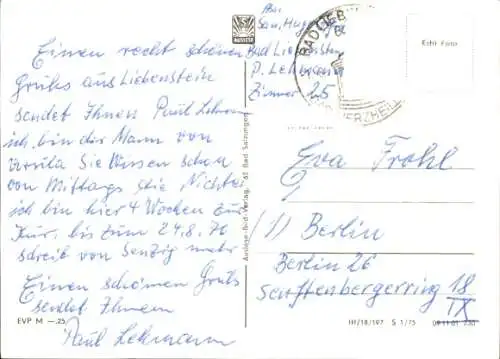 Einen recht schönen
Gruhs aus Liebenstein
sendet Ihnen Paul Lehmann
ich bin der Mann von
Ursula Sie Wissen schon
von Mittags die Nichte
ich bin hier 4 Wochen zur
Kur. bis zum 24.8.76
schreib von Senzig mehr
Einen schönen Gruhs
sendet Ihnen
Paul Lehmann
EVP M —.25
AUSLESE
Auslese-Bild-Verlag, 62 Bad Salzungen
San. Hugo
Bad Liebenstein
P. Lehmann
Zimmer 25
BAD LIEBEN
HERZHEIL
Echt Foto
Eva Frohl
(1) Berlin
Berlin 26
Senftenbergerring 18
IX
III/18/197 S 1/75